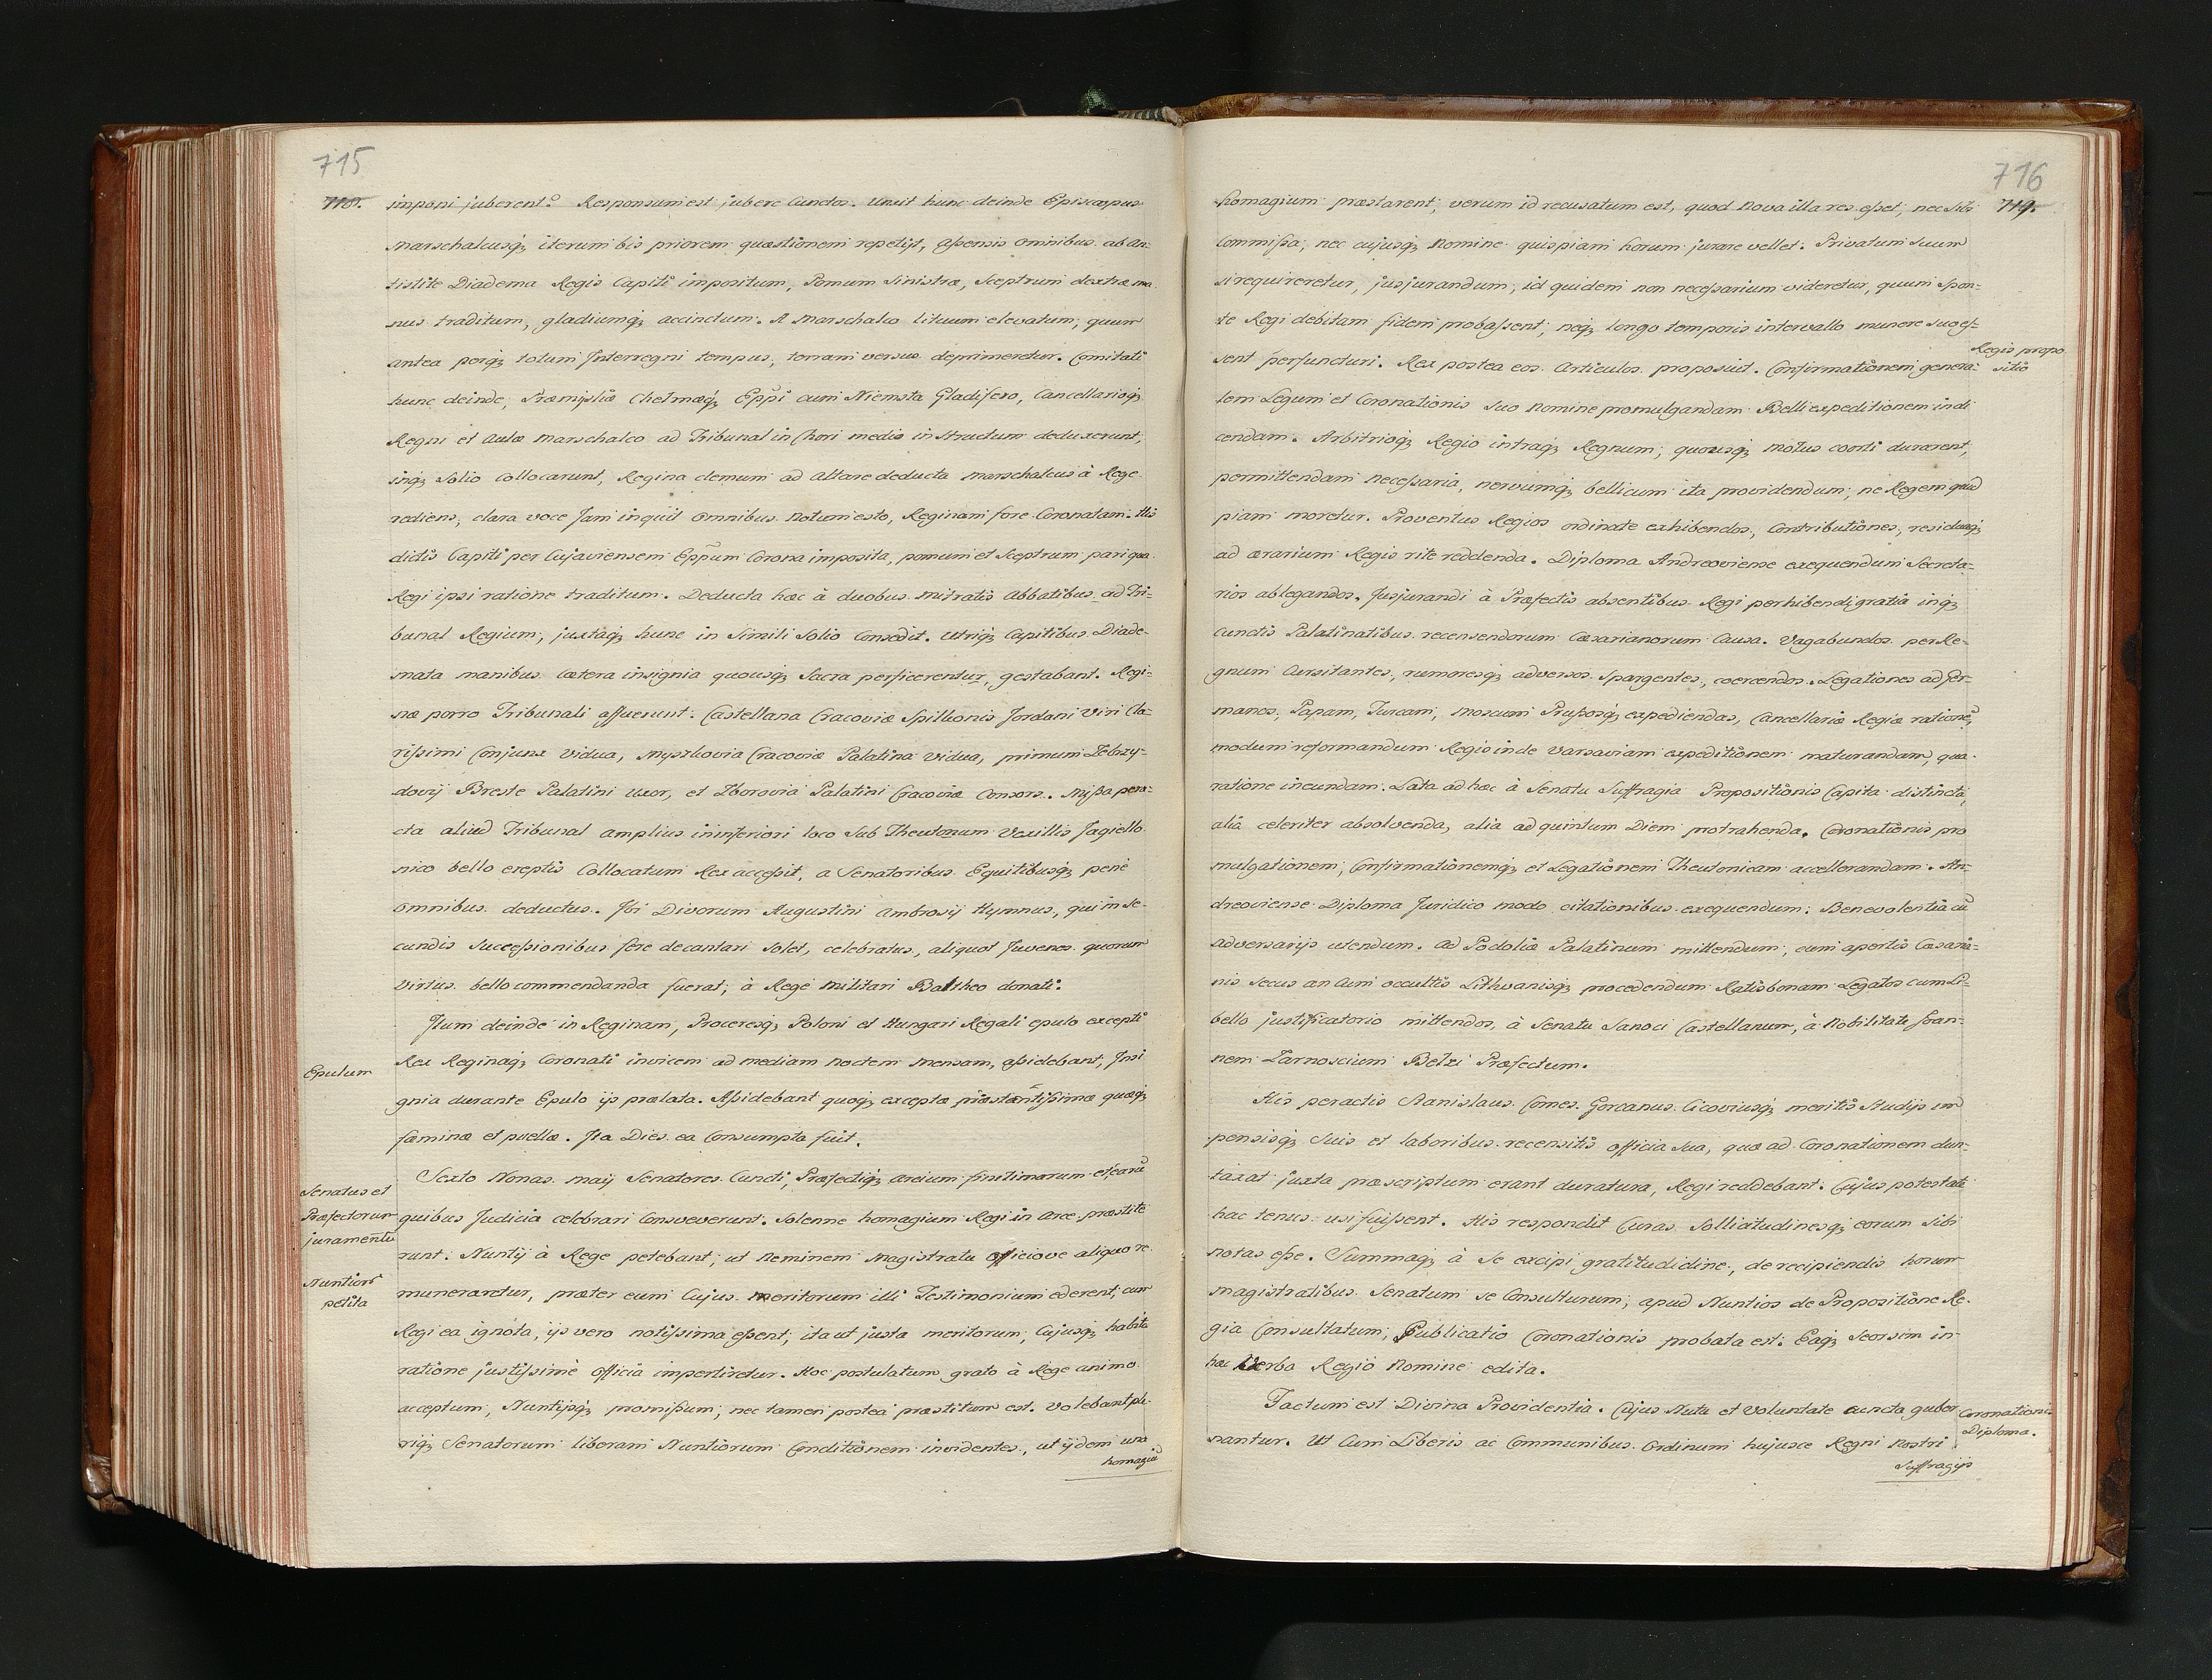 715
718.
imponi juberent? Responsum est jubere Cunctos. Unxit hunc deinde Episcopus
Marschalcusq; iterum bis priorem quæstionem repetijt, assensis omnibus ab An-
tistite Diadema Regis Capiti impositum, Pomum Sinistræ, Sceptrum dextræ ma
nus traditum, gladiumq; accinctum. A Marschalco lituum elevatum, quum
antea perq; totum Interregni tempus, terram versus deprimeretur. Comitati
hunc deinde, Præmisliæ Chelmæq; Eppi cum Niemsta Gladifero, Cancellarioq;
Regni et Aulæ Marschalco ad Tribunal in Chori medio instructum deduxerunt,
inq; Solio Collocarunt, Regina demum ad Altare deducta Marschalcus à Rege
rediens, clara voce Jam inquit omnibus notum esto, Reginam fore Coronatam. His
dictis Capiti per Cujaviensem Eppum Corona imposita, pomum et Sceptrum pari qua
Regi ipsi ratione traditum. Deducta hæc à duobus mitratis Abbatibus ad Tri-
bunal Regium, juxtaq; hunc in Simili Solio Consedit. Utriq; Capitibus Diade-
mata manibus cætera insignia quousq; Sacra perficerentur, gestabant. Regi-
næ porro Tribunali affuerunt. Castellana Cracoviæ Spitkonis Jordani Viri Cla-
rissimi Conjunx Vidua, Myszkovia Cracoviæ Palatina Vidua, primum Zebrzy-
dovij Breste Palatini uxor, et Zborovia Palatini Cracoviæ Consors. Missa pera-
cta aliud Tribunal amplius in inferiori loco Sub Theutonum Vexillis Jagiello
nico bello ereptis Collocatum Rex accessit, a Senatoribus Equitibusq; penè
omnibus deductus. Ibi Divorum Augustini Ambrosij Hymnus, qui in Se-
cundis Successionibus fere decantari Solet, celebratus, aliquot Juvenes quorum
Virtus bello commendanda fuerat, à Rege Militari Baltheo donati.
Itum deinde in Reginam, Proceresq; Poloni et Hungari Regali epulo excepti
Epulum
Rex Reginaq; Coronati invicem ad mediam noctem mensam, assidebant, Insi
gnia durante Epulo ijs prælata. Assidebant quoq; exceptæ præstantissimæ quæq;
fæminæ et puellæ. Ita Dies ea Consumpta fuit.
Senatus et
Præfectorum
juramentū
Sexto Nonas Maij Senatores Cuncti, Præfectiq; arcium finitimarum et earū
quibus Judicia celebrari Consveverunt. Solenne homagium Regi in Arce præstite
runt. Nuntij à Rege petebant, ut Neminem Magistratu officiove aliquo re
Nuntiorū
petita
muneraretur, præter eum Cujus meritorum illi Testimonium ederent, cum
Regi ea ignota, ijs vero notissima essent, ita ut justa meritorum, Cujusq; habita
ratione justissimè officia impertiretur. Hoc postulatum grato à Rege animo
acceptum, Nuntijsq; promissum, nec tamen postea præstitum est. Volebant ple
riq; Senatorum liberam Nuntiorum Conditionem invidentes, ut ijdem una
homagiū
716
719.
homagium præstarent, verum id recusatum est, quod Nova illa res esset, nec Sibi
Commissa, nec cujusq; Nomine quispiam horum jurare vellet. Privatum Suum
si requireretur, jusjurandum, id quidem non necessarium videretur, quum Spon-
te Regi debitam fidem probassent, neq; longo temporis intervallo munere suo es-
sent perfuncturi. Rex postea eos Articulos proposuit. Confirmationem genera-
Regis propo
sitio
lem Legum et Coronationis Suo Nomine promulgandam Belli expeditionem indi
cendam. Arbitrioq; Regio intraq; Regnum, quousq; motus coorti durarent,
permittendam Necessaria, nervumq; bellicum ita providendum, ne Regem quid
piam moretur. Proventus Regios ordinate exhibendos, Contributiones, residuaq;
ad ærarium Regis rite reddenda. Diploma Andreoviense exequendum Secreta-
rios ablegandos. Jusjurandi à Præfectis absentibus Regi perhibendi gratia inq;
cunctis Palatinatibus recensendorum Cæsarianorum Causa. Vagabundos per Re-
gnum Cursitantes, rumoresq; adversos Spargentes, coercendos. Legationes ad Ger-
manos, Papam, Turcam, Moscum Prussosq; expediendas, Cancellariæ Regiæ rationē,
modum reformandum Regio inde Varsaviam expeditionem maturandam, qua
ratione ineundam. Lata ad hæc à Senatu Suffragia Propositionis Capita distincta,
alia celeriter absolvenda, alia ad quintum Diem protrahenda. Coronationis pro
mulgationem, Confirmationemq; et Legationem Theutonicam accellerandam. An-
dreoviense Diploma Juridico modo citationibus exequendum. Benevolentia cū
adversarijs utendum. Ad Podoliæ Palatinum mittendum, cum apertis Cæsaria-
nis secus an Cum occultis Lithvanisq; procedendum Ratisbonam Legatos cum Li-
bello justificatorio mittendos, à Senatu Sanoci Castellanum, à Nobilitate Joan-
nem Zarnoscium Belzi Præfectum.
His peractis Stanislaus Comes Gorcanus Cicoviusq; meritis Studijs im
pensisq; Suis et laboribus recensitis officia Sua, quæ ad Coronationem dun-
taxat juxta præscriptum erant duratura, Regi reddebant. Cujus potestate
hac tenus usi fuissent. His respondit Curas Sollicitudinesq; eorum Sibi
notas esse. Summaq; à Se excipi gratitudidine, de recipiendis horum
magistratibus Senatum se Consulturum, apud Nuntios de Propositione Re-
gia Consultatum, Publicatio Coronationis probata est. Eaq; Seorsim in
hæc Verba Regio Nomine edita.
Factum est Divina Providentia. Cujus Nutu et Voluntate cuncta guber
Coronationis
Diploma.
nantur. Ut Cum Liberis ac Communibus Ordinum hujusce Regni Nostri
Suffragijs